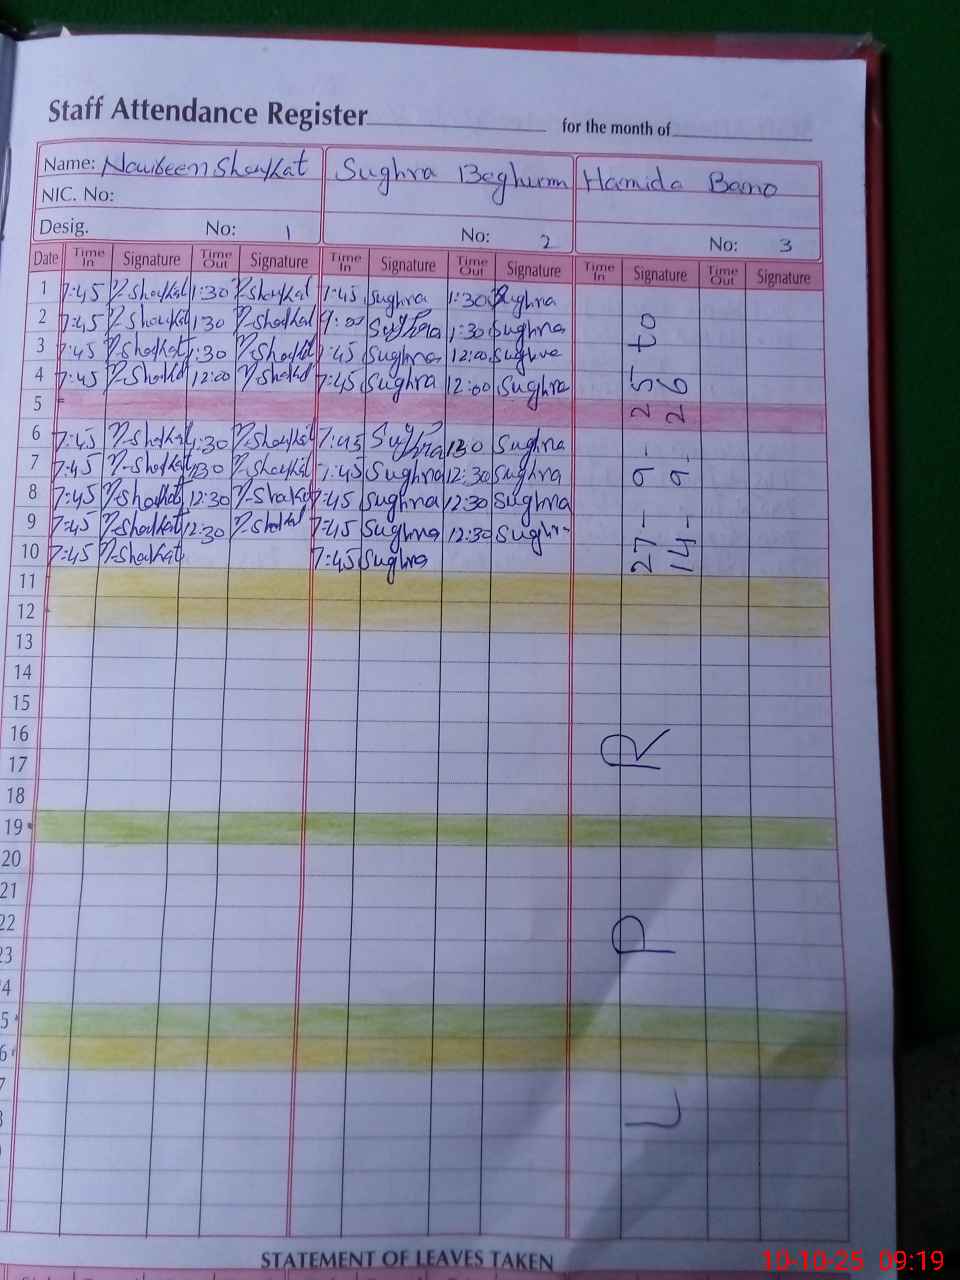 Staff Attendance Register for the month of
Name: Nowsheen Shoukat Sughra Beghum Hamida Bano
NIC. No:
Desig. No: 1 No: 2 No: 3
Date Time In Signature Time Out Signature Time In Signature Time Out Signature Time In Signature Time Out Signature
1 7:45 N-Shoukat 1:30 N-Shoukat 7:45 Sughra 1:30 Sughra
2 7:45 N-Shoukat 1:30 N-Shoukat 9:00 Sughra 1:30 Sughra
3 7:45 N-Shoukat 1:30 N-Shoukat 7:45 Sughra 12:00 Sughra
4 7:45 N-Shoukat 12:00 N-Shoukat 7:45 Sughra 12:00 Sughra
5
6 7:45 N-Shoukat 1:30 N-Shoukat 7:45 Sughra 1:30 Sughra
7 7:45 N-Shoukat 1:30 N-Shoukat 7:45 Sughra 12:30 Sughra
8 7:45 N-Shoukat 12:30 N-Shoukat 7:45 Sughra 12:30 Sughra
9 7:45 N-Shoukat 12:30 N-Shoukat 7:45 Sughra 12:30 Sughra
10 7:45 N-Shoukat 7:45 Sughra
27-9-25 to
14-9-26
11
12
13
14
15
16
17
18
19
20
21
22
23
4
5
6
7
8
L P R
STATEMENT OF LEAVES TAKEN
10-10-25 09:19